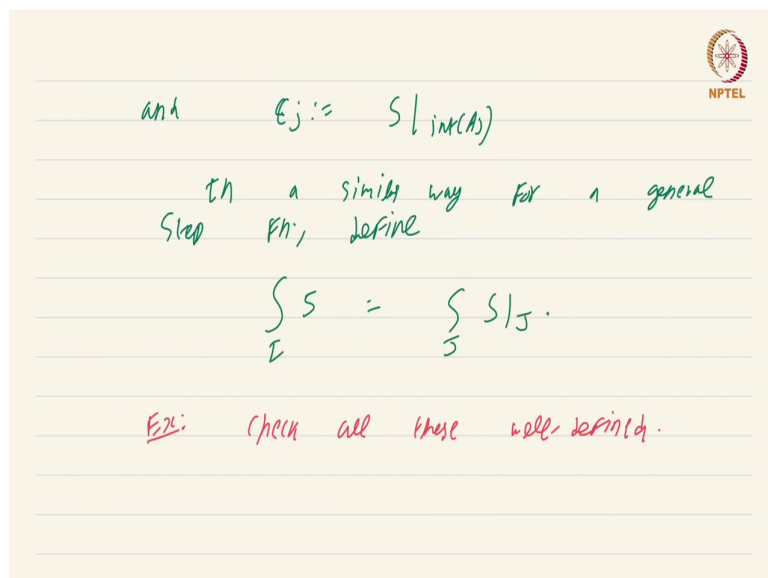 NPTEL
and Cj := S|int(Aj)
In a similar way for a general
Step Fn., define
∫_I S = ∫_J S|_J.
Ex: Check all these well-defined.